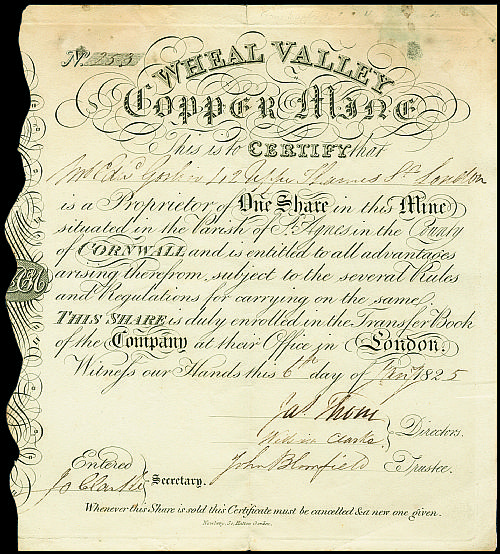 No. 253
WHEAL VALLEY
COPPER MINE
This is to CERTIFY that
42 Upper Thames St. London
is a Proprietor of One Share in this Mine
situated in the Parish of St. Agnes in the County
of CORNWALL and is entitled to all advantages
arising therefrom, subject to the several Rules
and Regulations for carrying on the same,
THIS SHARE is duly enrolled in the Transfer Book
of the Company at their Office in London.
Witness our Hands this 6th day of 1825
Jas. Thom
William Clarke
Directors.
John Blomfield Trustee.
Entered
Jo Clarke Secretary.
Whenever this Share is sold this Certificate must be cancelled & a new one given.
Newbury, Sc. Hatton Garden.